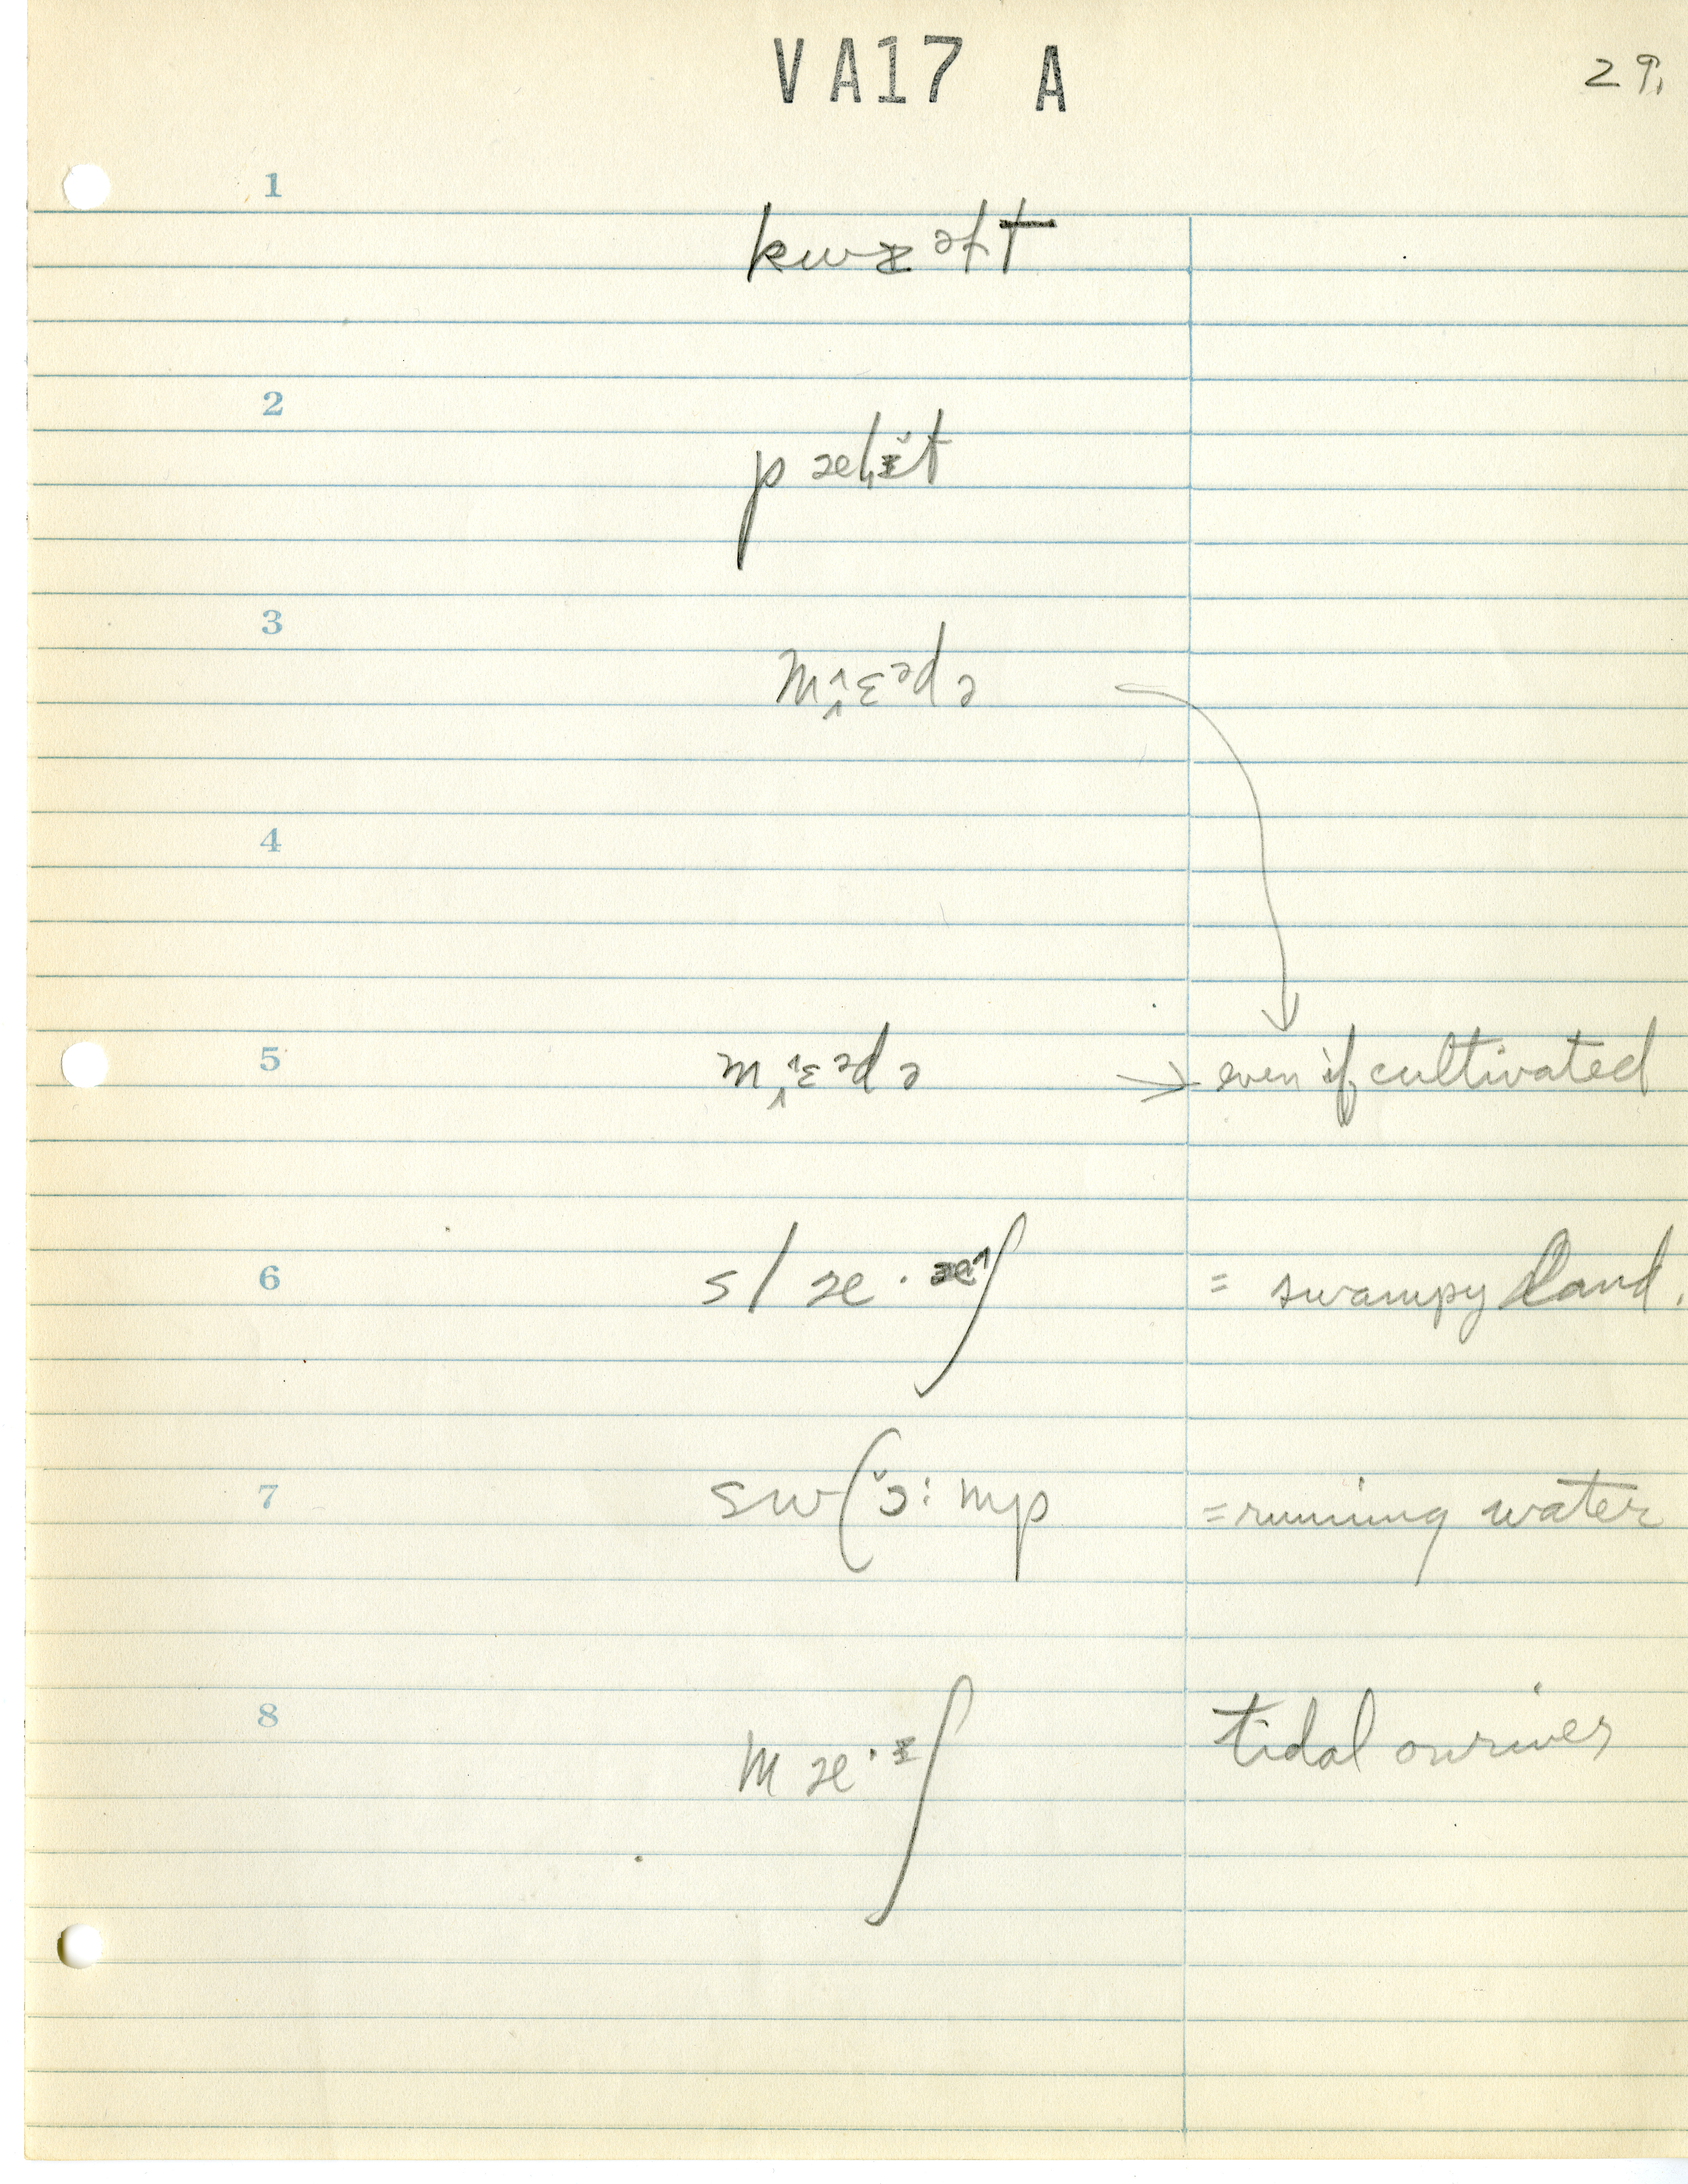 VA17 A
29.
1
kwɪəlt
2
pælɪ̆t
3
mɛᵊdə
4
5
mɛᵊdə → even if cultivated
6
slæ·ʃ = swampy land.
7
swɔ̆:mp = running water
8
mæ·ᶦʃ tidal on river